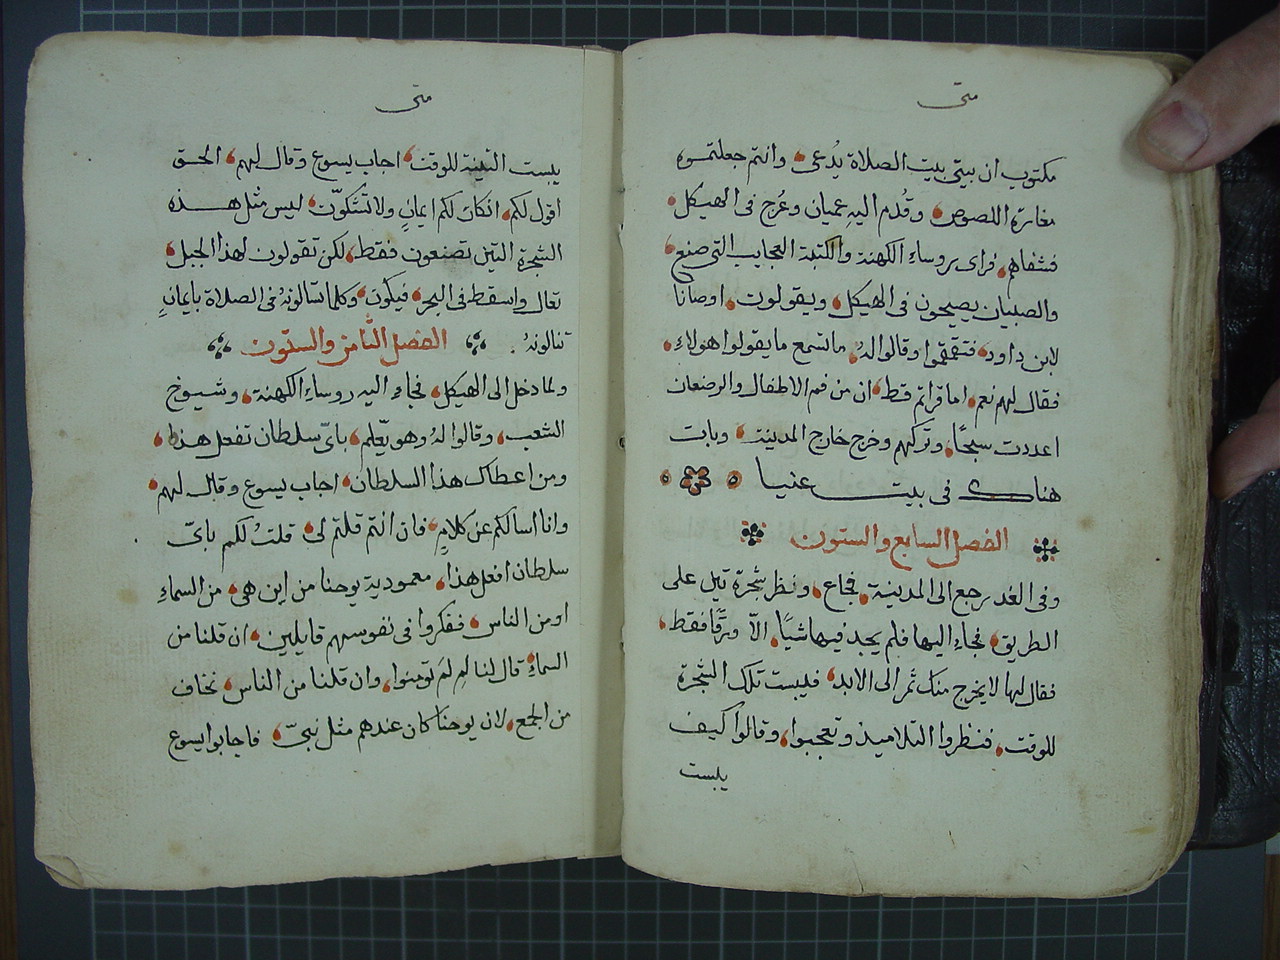 متى
مكتوب ان بيتى بيت الصلاة يُدعى، وانتم جعلتموه
مغارة اللصوص، وقُدم اليه عميان وعُرج فى الهيكل،
فشفاهم، فراى روساء الكهنة والكتبة العجايب التى صنع،
والصبيان يصيحون فى الهيكل، ويقولوت، اوصانا
لابن داود، فتقمقموا وقالوا لهُ، ماتسمع ما يقولوا هولاء،
فقال لهم نعم، اما قراتم قط، ان من فم الاطفال والرضعان
اعددت سبحًا، وتركهم وخرج خارج المدينة، وبات
هناك فى بيت عنيا
الفصل السابع والستون
وفى الغد رجع الى المدينة، فجاع، ونظر شجرة تين على
الطريق، فجاء اليها فلم يجد فيها شيًا، الّا ورقًا فقط،
فقال لها لا يخرج منك ثمر الى الابد، فيبست تلك الشجرة
للوقت، فنظروا التلاميذ وتعجبوا، وقالوا كيف
يبست
متى
يبست التينة للوقت، اجاب يسوع وقال لهم، الحق
اقول لكم، ان كان لكم ايمان ولا تشكّون، ليس مثل هذه
الشجرة التين تصنعون فقط، لكن تقولون لهذا الجبل،
تعال واسقط فى البحر، فيكون، وكلما تسالونهُ فى الصلاة بايمانٍ
تنالونهُ. الفصل الثامن والستون
ولما دخل الى الهيكل، فجاء اليه روساء الكهنة، وشيوخ
الشعب، وقالوا لهُ وهو يعّلم، باىّ سلطان تفعل هذا،
ومن اعطاك هذا السلطان، اجاب يسوع وقال لهم،
وانا اسالكم عن كلامٍ، فان انتم قلتم لى، قلتُ لكم باىّ
سلطان افعل هذا، معمودية يوحنا من اين هى، من السماء
او من الناس، ففكروا فى نفوسهم قايلين، ان قلنا من
السماء، قال لنا لِمِ لَم تومنوا، وان قلنا من الناس، نخاف
من الجمع، لان يوحنا كان عندهم مثل نبىّ، فاجابوا يسوع